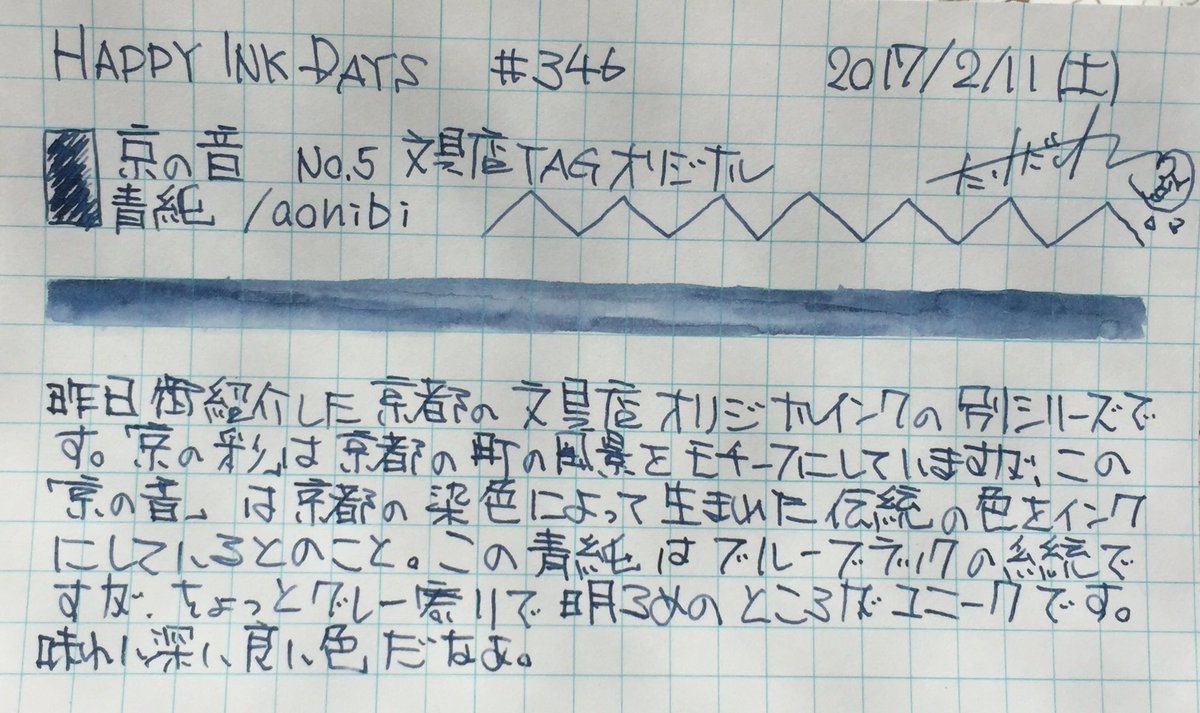 HAPPY INK DAYS #346 2017/2/11(土)
京の音 No.5 文具店TAGオリジナル
青純 /aonibi
昨日御紹介した京都の文具店オリジナルインクの別シリーズで
す。「京の彩」は京都の町の風景をモチーフにしていますが、この
「京の音」は京都の染色によって生まれた伝統の色をインク
にしているとのこと。この青純はブルーブラックの系統で
すが、ちょっとグレー寄りで明るめのところがユニークです。
味わい深い良い色だなぁ。